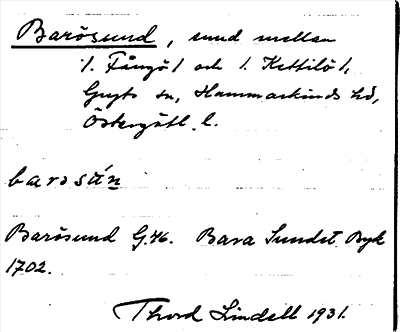 Barösund, sund mellan
1. Fångö 1 och 1. Kettilö 1,
Gryts sn, Hammarkinds hd,
Östergötl. l.
barəsún
Barösund G.46. Bara Sundet Byk
1702.
Thord Lindell 1931.